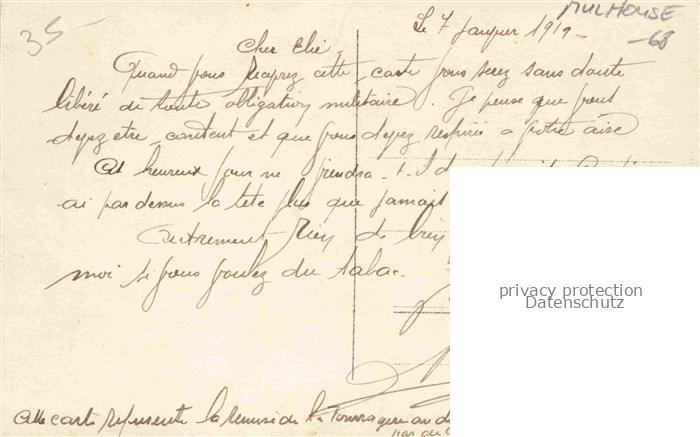 35
MULHOUSE
-68
Le 7 Janvier 1919-
Cher Elie,
Quand vous recevrez cette carte vous serez sans doute
libéré de toute obligation militaire. Je pense que vous
devez etre content et que vous devez respirer a votre aise
Cet heureux jour ne viendra-t-il
ai par dessus la tete plus que jamais
Autrement rien de bien
moi si vous voulez du tabac.
privacy protection
Datenschutz
Cette carte represente la remise de la Fourragere au
par